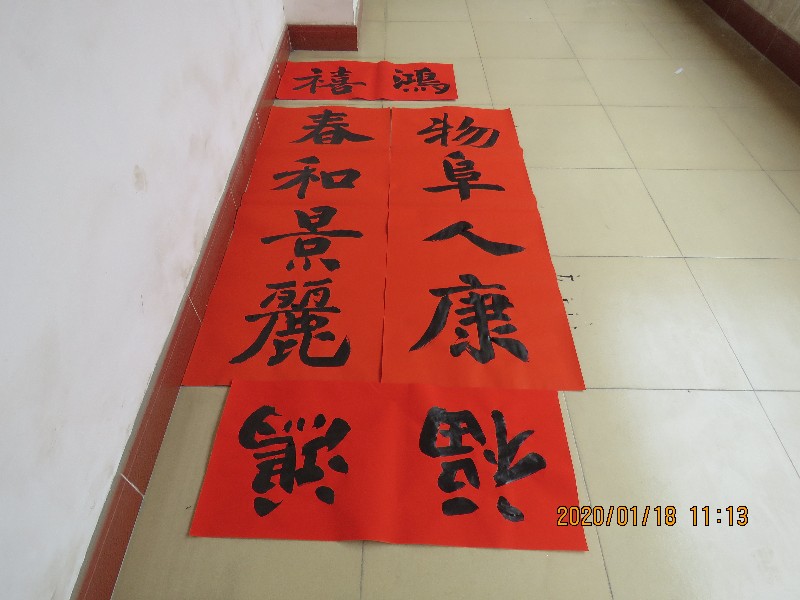 鴻禧
物阜人康
春和景麗
鴻福
2020/01/18 11:13